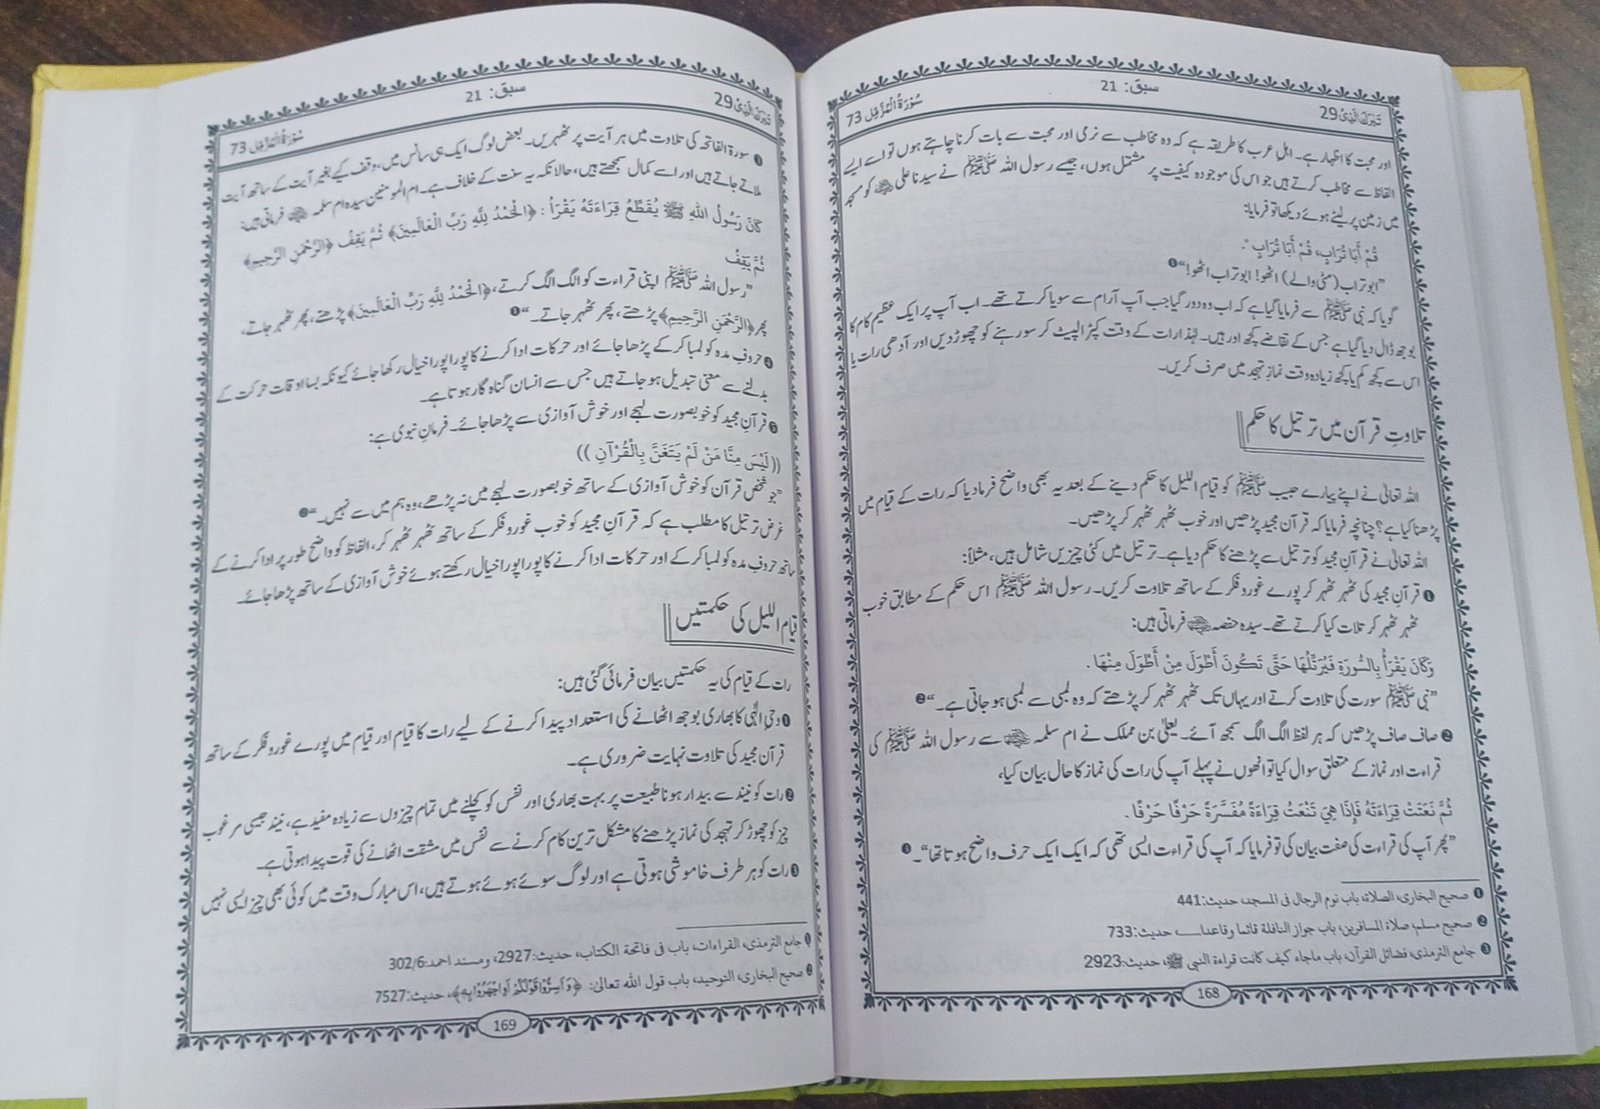 تَبٰرَكَ الَّذِیْ 29
سبق: 21
سُوْرَةُ الْمُزَّمِّل 73
اور محبت کا اظہار ہے۔ اہل عرب کا طریقہ ہے کہ وہ مخاطب سے نرمی اور محبت سے بات کرنا چاہتے ہوں تو اسے ایسے
الفاظ سے مخاطب کرتے ہیں جو اس کی موجودہ کیفیت پر مشتمل ہوں، جیسے رسول اللہ ﷺ نے سیدنا علی رضی اللہ عنہ کو مسجد
میں زمین پر لیٹے ہوئے دیکھا تو فرمایا:
قُمْ أَبَا تُرَابٍ، قُمْ أَبَا تُرَابٍ .
”ابوتراب (مٹی والے) اٹھو! ابوتراب اٹھو!“❶
گویا کہ نبی ﷺ سے فرمایا گیا ہے کہ اب وہ دور گیا جب آپ آرام سے سویا کرتے تھے۔ اب آپ پر ایک عظیم کام کا
بوجھ ڈال دیا گیا ہے جس کے تقاضے کچھ اور ہیں۔ لہٰذا رات کے وقت کپڑا لپیٹ کر سو رہنے کو چھوڑ دیں اور آدھی رات یا
اس سے کچھ کم یا کچھ زیادہ وقت نمازِ تہجد میں صرف کریں۔
تلاوتِ قرآن میں ترتیل کا حکم
اللہ تعالیٰ نے اپنے پیارے حبیب ﷺ کو قیام اللیل کا حکم دینے کے بعد یہ بھی واضح فرما دیا کہ رات کے قیام میں
پڑھنا کیا ہے؟ چنانچہ فرمایا کہ قرآن مجید پڑھیں اور خوب ٹھہر ٹھہر کر پڑھیں۔
اللہ تعالیٰ نے قرآنِ مجید کو ترتیل سے پڑھنے کا حکم دیا ہے۔ ترتیل میں کئی چیزیں شامل ہیں، مثلاً:
❶ قرآن مجید کی ٹھہر ٹھہر کر پورے غور و فکر کے ساتھ تلاوت کریں۔ رسول اللہ ﷺ اس حکم کے مطابق خوب
ٹھہر ٹھہر کر تلات کیا کرتے تھے۔ سیدہ حفصہ رضی اللہ عنہا فرماتی ہیں:
وَكَانَ يَقْرَأُ بِالسُّورَةِ فَيُرَتِّلُهَا حَتَّى تَكُونَ أَطْوَلَ مِنْ أَطْوَلَ مِنْهَا .
”نبی ﷺ سورت کی تلاوت کرتے اور یہاں تک ٹھہر ٹھہر کر پڑھتے کہ وہ لمبی سے لمبی ہو جاتی ہے۔“❷
❷ صاف صاف پڑھیں کہ ہر لفظ الگ الگ سمجھ آئے۔ یعلیٰ بن مملک نے ام سلمہ رضی اللہ عنہا سے رسول اللہ ﷺ کی
قراءت اور نماز کے متعلق سوال کیا تو انھوں نے پہلے آپ کی رات کی نماز کا حال بیان کیا،
ثُمَّ نَعَتَتْ قِرَاءَتَهُ فَإِذَا هِيَ تَنْعَتُ قِرَاءَةً مُفَسَّرَةً حَرْفًا حَرْفًا .
”پھر آپ کی قراءت کی صفت بیان کی تو فرمایا کہ آپ کی قراءت ایسی تھی کہ ایک ایک حرف واضح ہوتا تھا“۔❸
❶ صحیح البخاری، الصلاة، باب نوم الرجال فی المسجد، حدیث:441
❷ صحیح مسلم، صلاة المسافرین، باب جواز النافلة قائما وقاعدا...، حدیث:733
❸ جامع الترمذی، فضائل القرآن، باب ماجاء کیف کانت قراءة النبی ﷺ، حدیث:2923
168
تَبٰرَكَ الَّذِیْ 29
سبق: 21
سُوْرَةُ الْمُزَّمِّل 73
❸ سورۃ الفاتحہ کی تلاوت میں ہر آیت پر ٹھہریں۔ بعض لوگ ایک ہی سانس میں، وقف کیے بغیر آیت کے ساتھ آیت
ملاتے جاتے ہیں اور اسے کمال سمجھتے ہیں، حالانکہ یہ سنت کے خلاف ہے۔ ام المومنین سیدہ ام سلمہ رضی اللہ عنہا فرماتی ہیں:
كَانَ رَسُولُ اللهِ ﷺ يُقَطِّعُ قِرَاءَتَهُ يَقْرَأُ : ﴿الْحَمْدُ لِلَّهِ رَبِّ الْعَالَمِينَ﴾ ثُمَّ يَقِفُ ﴿الرَّحْمَنِ الرَّحِيمِ﴾
ثُمَّ يَقِفُ
”رسول اللہ ﷺ اپنی قراءت کو الگ الگ کرتے، ﴿الْحَمْدُ لِلَّهِ رَبِّ الْعَالَمِينَ﴾ پڑھتے، پھر ٹھہر جاتے،
پھر ﴿الرَّحْمَنِ الرَّحِيمِ﴾ پڑھتے، پھر ٹھہر جاتے۔“❶
❹ حروفِ مدہ کو لمبا کر کے پڑھا جائے اور حرکات ادا کرنے کا پورا پورا خیال رکھا جائے کیونکہ بسا اوقات حرکت کے
بدلنے سے معنی تبدیل ہو جاتے ہیں جس سے انسان گناہ گار ہوتا ہے۔
❺ قرآنِ مجید کو خوبصورت لہجے اور خوش آوازی سے پڑھا جائے۔ فرمانِ نبوی ہے:
((لَيْسَ مِنَّا مَنْ لَمْ يَتَغَنَّ بِالْقُرْآنِ ))
”جو شخص قرآن کو خوش آوازی کے ساتھ خوبصورت لہجے میں نہ پڑھے، وہ ہم میں سے نہیں۔“❷
غرض ترتیل کا مطلب ہے کہ قرآنِ مجید کو خوب غور و فکر کے ساتھ ٹھہر ٹھہر کر، الفاظ کو واضح طور پر ادا کرنے کے
ساتھ حروفِ مدہ کو لمبا کر کے اور حرکات ادا کرنے کا پورا پورا خیال رکھتے ہوئے خوش آوازی کے ساتھ پڑھا جائے۔
قیام اللیل کی حکمتیں
رات کے قیام کی یہ حکمتیں بیان فرمائی گئی ہیں:
❶ وحیِ الٰہی کا بھاری بوجھ اٹھانے کی استعداد پیدا کرنے کے لیے رات کا قیام اور قیام میں پورے غور و فکر کے ساتھ
قرآن مجید کی تلاوت نہایت ضروری ہے۔
❷ رات کو نیند سے بیدار ہونا طبیعت پر بہت بھاری اور نفس کو کچلنے میں تمام چیزوں سے زیادہ مفید ہے، نیند جیسی مرغوب
چیز کو چھوڑ کر تہجد کی نماز پڑھنے کا مشکل ترین کام کرنے سے نفس میں مشقت اٹھانے کی قوت پیدا ہوتی ہے۔
❸ رات کو ہر طرف خاموشی ہوتی ہے اور لوگ سوئے ہوئے ہوتے ہیں، اس مبارک وقت میں کوئی بھی چیز ایسی نہیں
❶ جامع الترمذی، القراءات، باب فی فاتحة الکتاب، حدیث:2927، ومسند احمد:302/6
❷ صحیح البخاری، التوحید، باب قول اللہ تعالیٰ: ﴿وَاَسِرُّوْا قَوْلَكُمْ اَوِ اجْهَرُوْا بِهٖ﴾، حدیث:7527
169